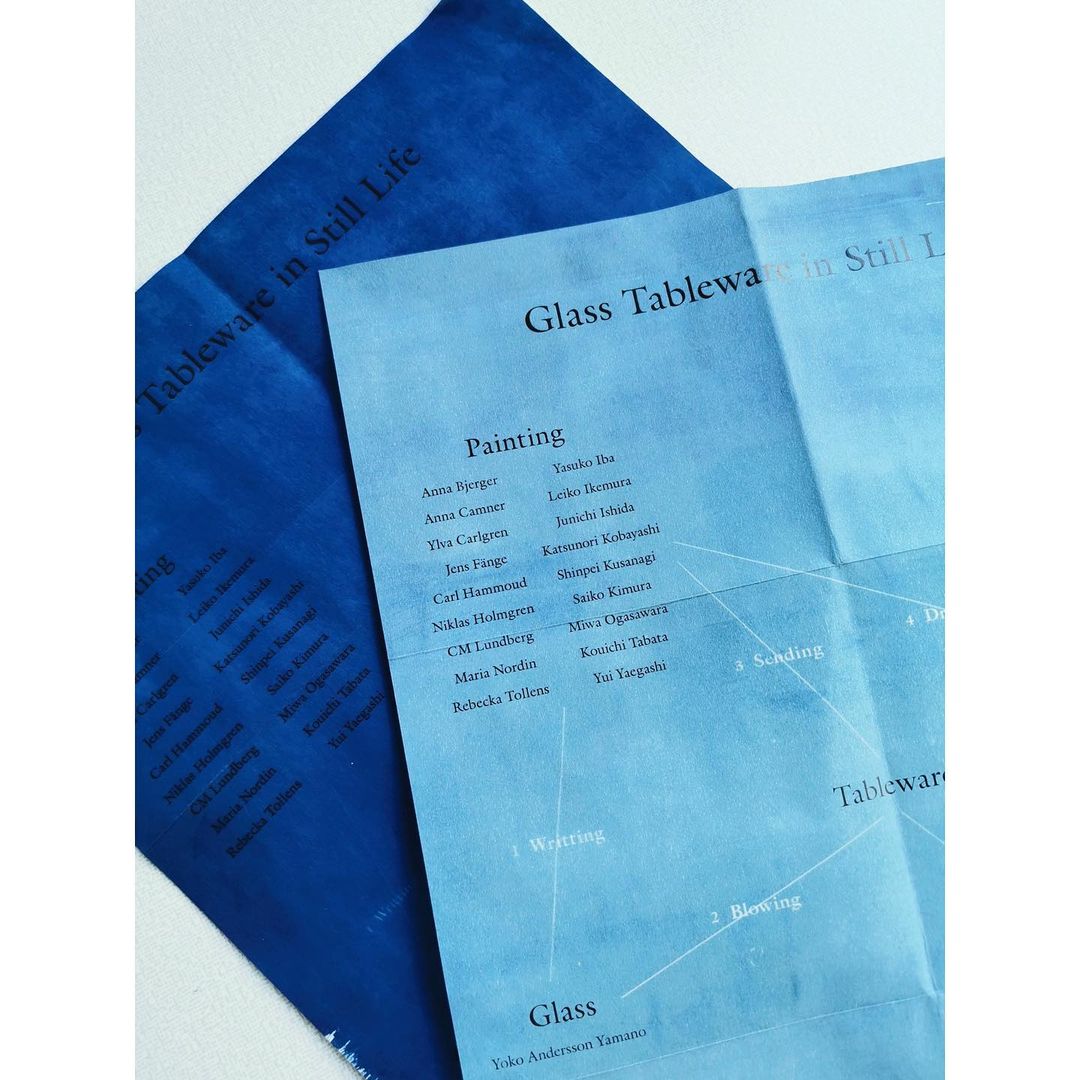 Tableware in Still Life
Yasuko Iba
Leiko Ikemura
Junichi Ishida
Katsunori Kobayashi
Shinpei Kusanagi
Saiko Kimura
Miwa Ogasawara
Kouichi Tabata
Yui Yaegashi
Carlgren
Jens Fänge
Carl Hammoud
Niklas Holmgren
CM Lundberg
Maria Nordin
Rebecka Tollens
Glass Tableware in Still L
Painting
Anna Bjerger
Anna Camner
Ylva Carlgren
Jens Fänge
Carl Hammoud
Niklas Holmgren
CM Lundberg
Maria Nordin
Rebecka Tollens
Yasuko Iba
Leiko Ikemura
Junichi Ishida
Katsunori Kobayashi
Shinpei Kusanagi
Saiko Kimura
Miwa Ogasawara
Kouichi Tabata
Yui Yaegashi
4 Dr
3 Sending
Tableware
1 Writting
2 Blowing
Glass
Yoko Andersson Yamano